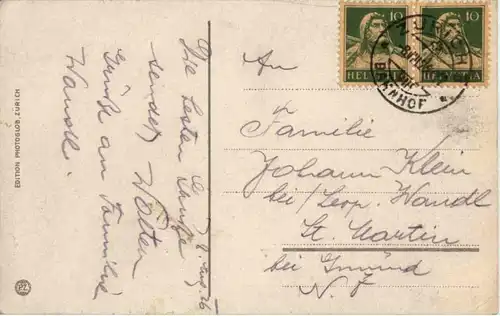 Die besten Grüße
sendet Walter
Grüße an Familie
Wandl.
8. Aug. 26
An
Familie
Johann Klein
bei/Leop. Wandl
St. Martin
bei Gmünd
N. Ö
10
10
HELVETIA
HELVETIA
ZÜRICH
BAHNHOF
EDITION PHOTOGLOB, ZÜRICH
PZ